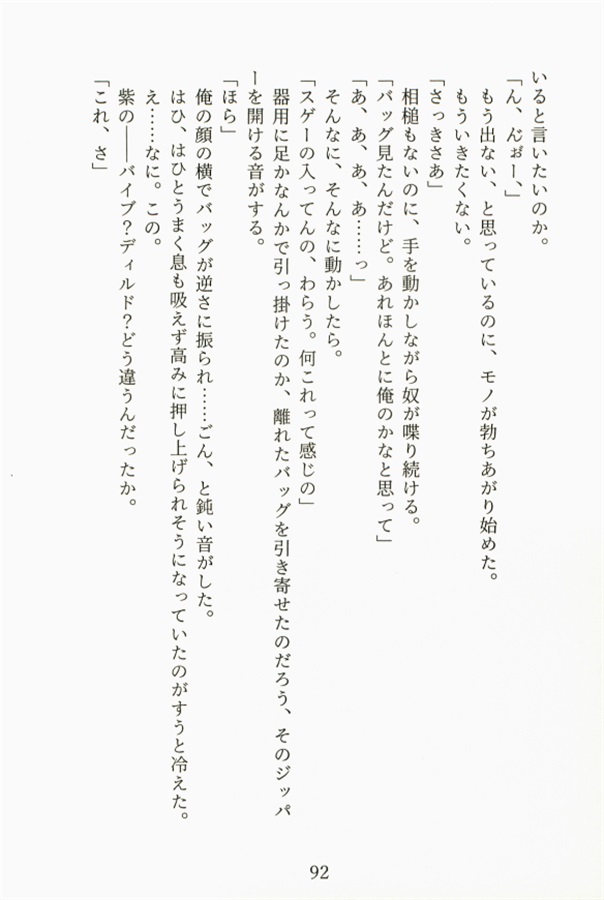 いると言いたいのか。
「ん、んぉ゛ー、」
もう出ない、と思っているのに、モノが勃ちあがり始めた。
もういきたくない。
「さっきさあ」
相槌もないのに、手を動かしながら奴が喋り続ける。
「バッグ見たんだけど。あれほんとに俺のかなと思って」
「あ、あ、あ、あ……っ」
そんなに、そんなに動かしたら。
「スゲーの入ってんの、わらう。何これって感じの」
器用に足かなんかで引っ掛けたのか、離れたバッグを引き寄せたのだろう、そのジッパ
ーを開ける音がする。
「ほら」
俺の顔の横でバッグが逆さに振られ……ごん、と鈍い音がした。
はひ、はひとうまく息も吸えず高みに押し上げられそうになっていたのがすうと冷えた。
え……なに。この。
紫の――バイブ？ディルド？どう違うんだったか。
「これ、さ」
92